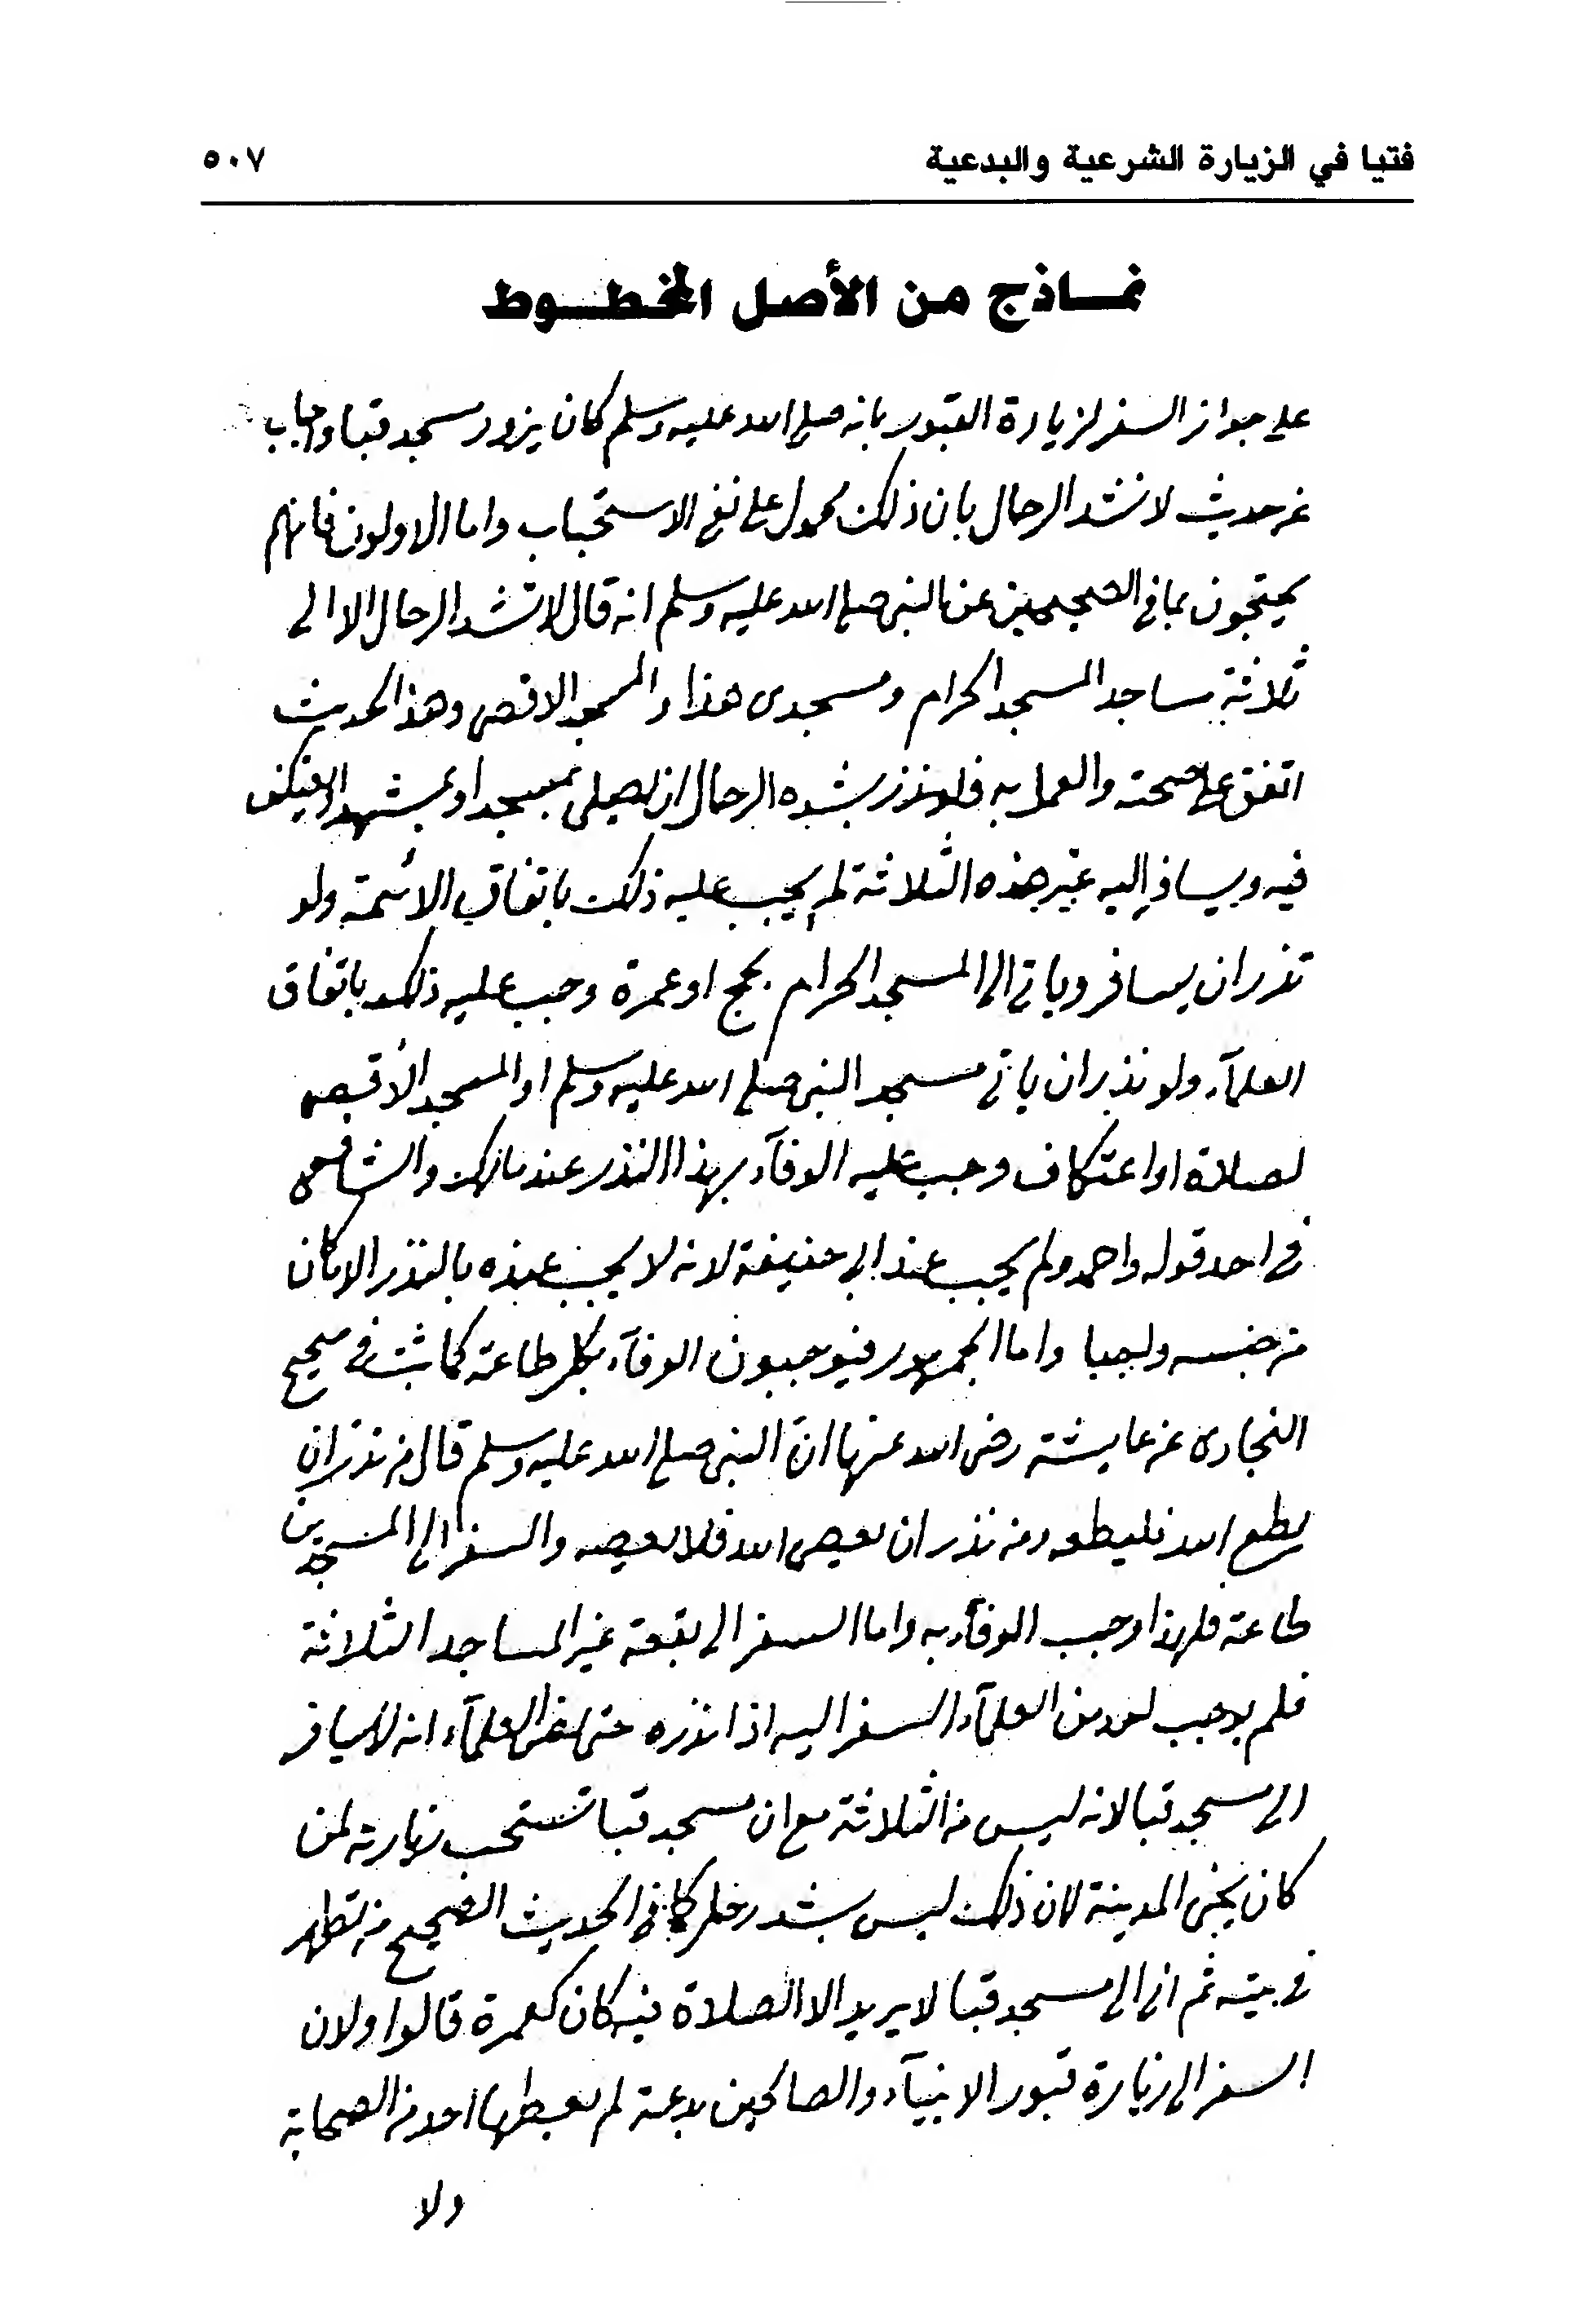 فتيا في الزيارة الشرعية والبدعية
٥٠٧
نماذج من الأصل المخطوط
على جواز السفر لزيارة القبور بانه صلى الله عليه وسلم كان يزور مسجد قبا واجاب
عن حديث لا تشد الرحال بان ذلك محمول على نفي الاستحباب واما الاولون فانهم
يحتجون بما في الصحيحين عن النبي صلى الله عليه وسلم انه قال لا تشد الرحال الا الى
ثلاثة مساجد المسجد الحرام ومسجدى هذا والمسجد الاقصى وهذا الحديث
اتفق على صحته والعمل به فلو نذر بشده الرحال ان يصلى بمسجد او بمشهد او يعتكف
فيه ويسافر إليه غير هذه الثلاثة لم يجب عليه ذلك باتفاق الائمة ولو
نذر ان يسافر وياتي الى المسجد الحرام بحج او عمرة وجب عليه ذلك باتفاق
العلمآء ولو نذر ان ياتي مسجد النبي صلى الله عليه وسلم او المسجد الأقصى
لصلاة او اعتكاف وجب عليه الوفآء بهذا النذر عند مالك والشافعى
في احد قوله واحمد ولم يجب عند ابى حنيفة لانه لا يجب عنده بالنذر الا ما كان
من جنسه واجبا واما الجمهور فيوجبون الوفآء بكل طاعة كما ثبت في صحيح
البخارى عن عايشة رضى الله عنها ان النبي صلى الله عليه وسلم قال من نذر ان
يطع الله فليطعه ومن نذر ان يعصى الله فلا يعصه والسفر الى المسجدين
طاعة فلهذا وجب الوفآء به واما السفر الى بقعة غير المساجد الثلاثة
فلم يوجب احد من العلمآء السفر اليه اذا نذره حتى نص العلمآء انه لا يسافر
الى مسجد قبا لانه ليس من الثلاثة مع ان مسجد قبا تستحب زيارته لمن
كان بالمدينة لان ذلك ليس بشد رحل كما في الحديث الصحيح من تطهر
في بيته ثم اتى الى مسجد قبا لا يريد الا الصلاة فيه كان كعمرة قالوا ولان
السفر الى زيارة قبور الانبيآء والصالحين بدعة لم يفعلها احد من الصحابة
ولا